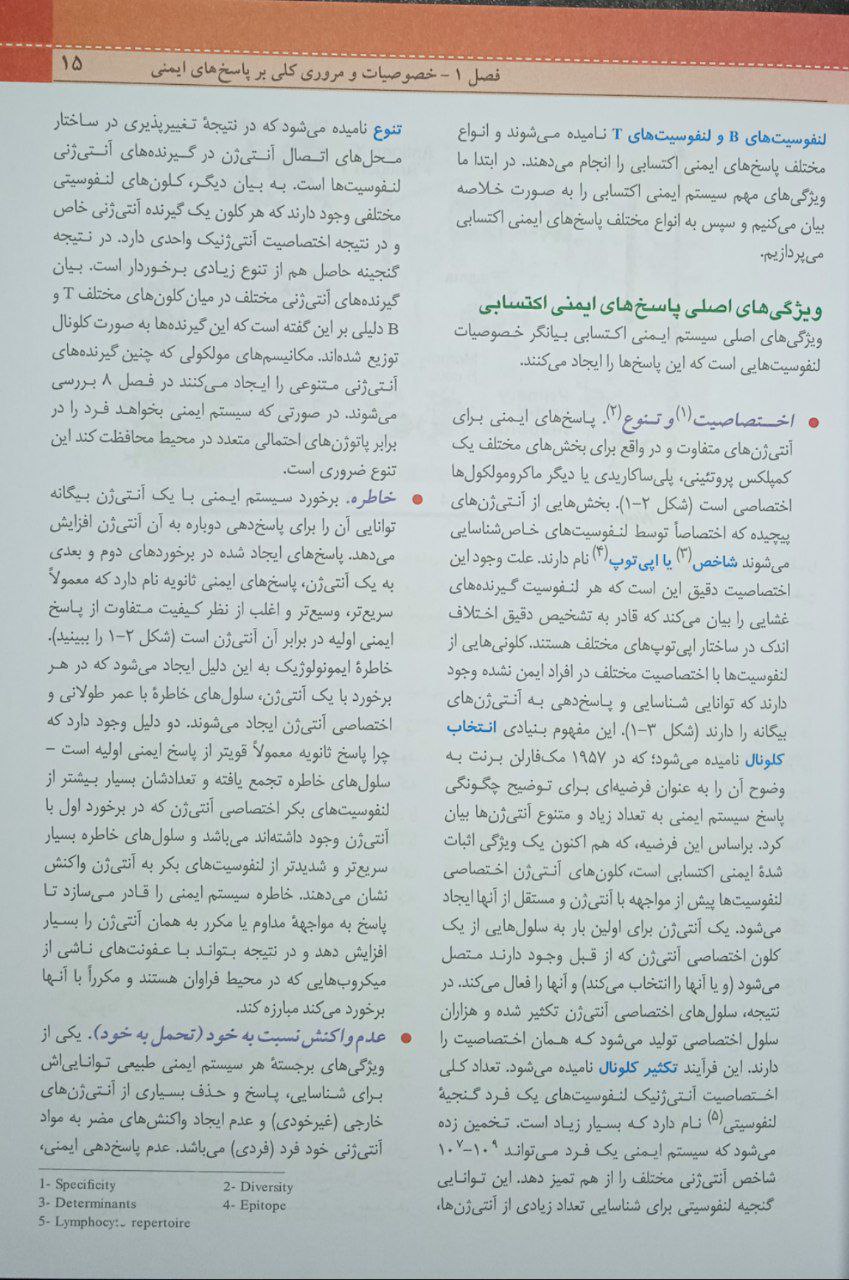 فصل ۱ - خصوصیات و مروری کلی بر پاسخ‌های ایمنی
۱۵
لنفوسیت‌های B و لنفوسیت‌های T نامیده می‌شوند و انواع
مختلف پاسخ‌های ایمنی اکتسابی را انجام می‌دهند. در ابتدا ما
ویژگی‌های مهم سیستم ایمنی اکتسابی را به صورت خلاصه
بیان می‌کنیم و سپس به انواع مختلف پاسخ‌های ایمنی اکتسابی
می‌پردازیم.
ویژگی‌های اصلی پاسخ‌های ایمنی اکتسابی
ویژگی‌های اصلی سیستم ایمنی اکتسابی بیانگر خصوصیات
لنفوسیت‌هایی است که این پاسخ‌ها را ایجاد می‌کنند.
● اختصاصیت(۱) و تنوع(۲). پاسخ‌های ایمنی برای
آنتی‌ژن‌های متفاوت و در واقع برای بخش‌های مختلف یک
کمپلکس پروتئینی، پلی‌ساکاریدی یا دیگر ماکرومولکول‌ها
اختصاصی است (شکل ۲-۱). بخش‌هایی از آنتی‌ژن‌های
پیچیده که اختصاصاً توسط لنفوسیت‌های خاص‌شناسایی
می‌شوند شاخص(۳) یا اپی‌توپ(۴) نام دارند. علت وجود این
اختصاصیت دقیق این است که هر لنفوسیت گیرنده‌های
غشایی را بیان می‌کند که قادر به تشخیص دقیق اختلاف
اندک در ساختار اپی‌توپ‌های مختلف هستند. کلونی‌هایی از
لنفوسیت‌ها با اختصاصیت مختلف در افراد ایمن نشده وجود
دارند که توانایی شناسایی و پاسخ‌دهی به آنتی‌ژن‌های
بیگانه را دارند (شکل ۳-۱). این مفهوم بنیادی انتخاب
کلونال نامیده می‌شود؛ که در ۱۹۵۷ مک‌فارلن برنت به
وضوح آن را به عنوان فرضیه‌ای برای توضیح چگونگی
پاسخ سیستم ایمنی به تعداد زیاد و متنوع آنتی‌ژن‌ها بیان
کرد. براساس این فرضیه، که هم اکنون یک ویژگی اثبات
شدهٔ ایمنی اکتسابی است، کلون‌های آنتی‌ژن اختصاصی
لنفوسیت‌ها پیش از مواجهه با آنتی‌ژن و مستقل از آنها ایجاد
می‌شود. یک آنتی‌ژن برای اولین بار به سلول‌هایی از یک
کلون اختصاصی آنتی‌ژن که از قبل وجود دارند متصل
می‌شود (و یا آنها را انتخاب می‌کند) و آنها را فعال می‌کند. در
نتیجه، سلول‌های اختصاصی آنتی‌ژن تکثیر شده و هزاران
سلول اختصاصی تولید می‌شود که همان اختصاصیت را
دارند. این فرآیند تکثیر کلونال نامیده می‌شود. تعداد کلی
اختصاصیت آنتی‌ژنیک لنفوسیت‌های یک فرد گنجیهٔ
لنفوسیتی(۵) نام دارد که بسیار زیاد است. تخمین زده
می‌شود که سیستم ایمنی یک فرد می‌تواند ۱۰۹-۱۰۷
شاخص آنتی‌ژنی مختلف را از هم تمیز دهد. این توانایی
گنجیه لنفوسیتی برای شناسایی تعداد زیادی از آنتی‌ژن‌ها،
تنوع نامیده می‌شود که در نتیجهٔ تغییرپذیری در ساختار
محل‌های اتصال آنتی‌ژن در گیرنده‌های آنتی‌ژنی
لنفوسیت‌ها است. به بیان دیگر، کلون‌های لنفوسیتی
مختلفی وجود دارند که هر کلون یک گیرنده آنتی‌ژنی خاص
و در نتیجه اختصاصیت آنتی‌ژنیک واحدی دارد. در نتیجه
گنجینه حاصل هم از تنوع زیادی برخوردار است. بیان
گیرنده‌های آنتی‌ژنی مختلف در میان کلون‌های مختلف T و
B دلیلی بر این گفته است که این گیرنده‌ها به صورت کلونال
توزیع شده‌اند. مکانیسم‌های مولکولی که چنین گیرنده‌های
آنتی‌ژنی متنوعی را ایجاد می‌کنند در فصل ۸ بررسی
می‌شوند. در صورتی که سیستم ایمنی بخواهد فرد را در
برابر پاتوژن‌های احتمالی متعدد در محیط محافظت کند این
تنوع ضروری است.
● خاطره. برخورد سیستم ایمنی با یک آنتی‌ژن بیگانه
توانایی آن را برای پاسخ‌دهی دوباره به آن آنتی‌ژن افزایش
می‌دهد. پاسخ‌های ایجاد شده در برخوردهای دوم و بعدی
به یک آنتی‌ژن، پاسخ‌های ایمنی ثانویه نام دارد که معمولاً
سریع‌تر، وسیع‌تر و اغلب از نظر کیفیت متفاوت از پاسخ
ایمنی اولیه در برابر آن آنتی‌ژن است (شکل ۲-۱ را ببینید).
خاطرهٔ ایمونولوژیک به این دلیل ایجاد می‌شود که در هر
برخورد با یک آنتی‌ژن، سلول‌های خاطرهٔ با عمر طولانی و
اختصاصی آنتی‌ژن ایجاد می‌شوند. دو دلیل وجود دارد که
چرا پاسخ ثانویه معمولاً قویتر از پاسخ ایمنی اولیه است –
سلول‌های خاطره تجمع یافته و تعدادشان بسیار بیشتر از
لنفوسیت‌های بکر اختصاصی آنتی‌ژن که در برخورد اول با
آنتی‌ژن وجود داشته‌اند می‌باشد و سلول‌های خاطره بسیار
سریع‌تر و شدیدتر از لنفوسیت‌های بکر به آنتی‌ژن واکنش
نشان می‌دهند. خاطره سیستم ایمنی را قادر می‌سازد تا
پاسخ به مواجههٔ مداوم یا مکرر به همان آنتی‌ژن را بسیار
افزایش دهد و در نتیجه بتواند با عفونت‌های ناشی از
میکروب‌هایی که در محیط فراوان هستند و مکرراً با آنها
برخورد می‌کند مبارزه کند.
● عدم واکنش نسبت به خود (تحمل به خود). یکی از
ویژگی‌های برجستهٔ هر سیستم ایمنی طبیعی توانایی‌اش
برای شناسایی، پاسخ و حذف بسیاری از آنتی‌ژن‌های
خارجی (غیرخودی) و عدم ایجاد واکنش‌های مضر به مواد
آنتی‌ژنی خود فرد (فردی) می‌باشد. عدم پاسخ‌دهی ایمنی،
1- Specificity 2- Diversity
3- Determinants 4- Epitope
5- repertoire